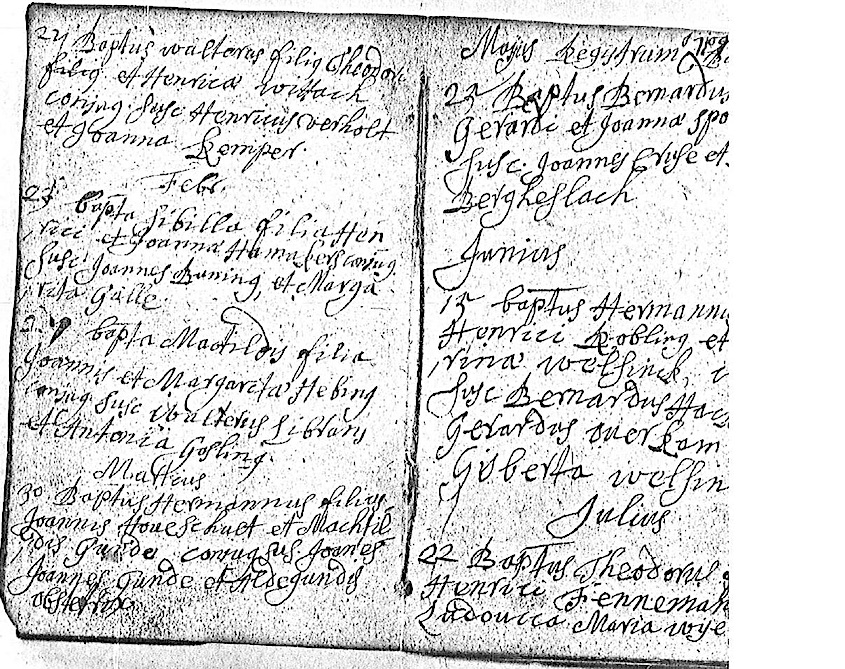 27 Baptus walterus filius Theodori
filius et Henricæ wittach
conjug. susc Henricus verholt
et Joanna Kemper.
Febr.
23 bapta Sibilla filia Hen
rici et Joannæ Hamakers conjug.
susc. Joannes Buning, et Marga
rita Galle.
bapta Machtildis filia
Joannis et Margareta Hebing
conjug susc walterus Librars
et Antonia Gosling.
Martius
30 Baptus Hermannus filius
Joannis Houeschuet et Machtil
dis Gunde conjug sus Joannes
Joannes Gunde et Aldegundis
obstetrix
Majus Registrum
23 Baptus Bernardus
Gerardi et Joannæ spo
susc. Joannes Cruse et
Bergheslach
Junius
15 baptus Hermannu
Henrici Kobling et
rinæ welsinck,
susc Bernardus Hac
Gerardus overkam
Gisberta welsin
Julius
22 Baptus Theodorus
Henrici Fenneman
Ludovica Maria wye